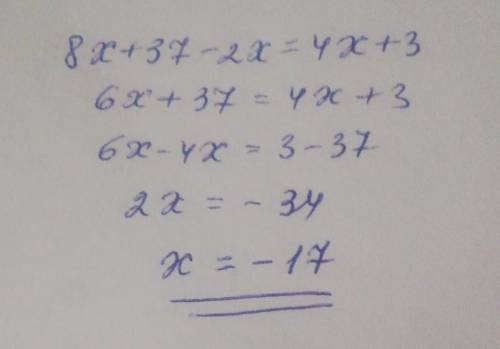 8x+37-2x=4x+3
6x+37=4x+3
6x-4x=3-37
2x=-34
x=-17